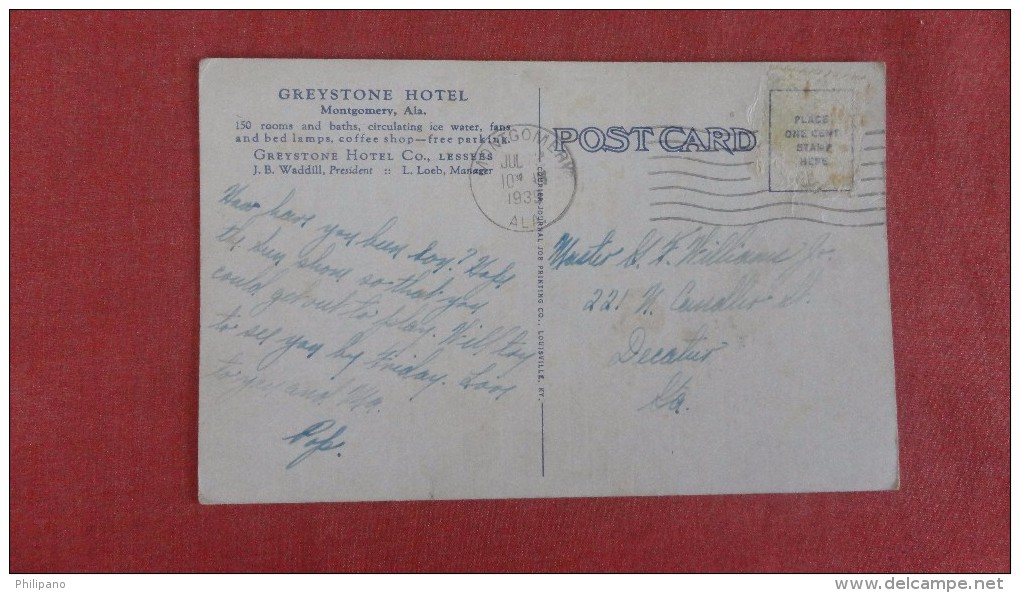 GREYSTONE HOTEL
Montgomery, Ala.
150 rooms and baths, circulating ice water, fans
and bed lamps, coffee shop—free parking.
GREYSTONE HOTEL CO., LESSEES
J. B. Waddill, President :: L. Loeb, Manager
How have you been boy? Hope
the sun shone so that you
could get out to play. Will try
to see you by Friday. Love
to you and Ma.
Pop.
MONTGOMERY
JUL
10
193
ALA
COURIER-JOURNAL JOB PRINTING CO., LOUISVILLE, KY.
POST CARD
PLACE
ONE CENT
STAMP
HERE
Master G. F. Williams Jr.
221 N. Candler St.
Decatur
Ga.
Philipano
www.delcampe.net